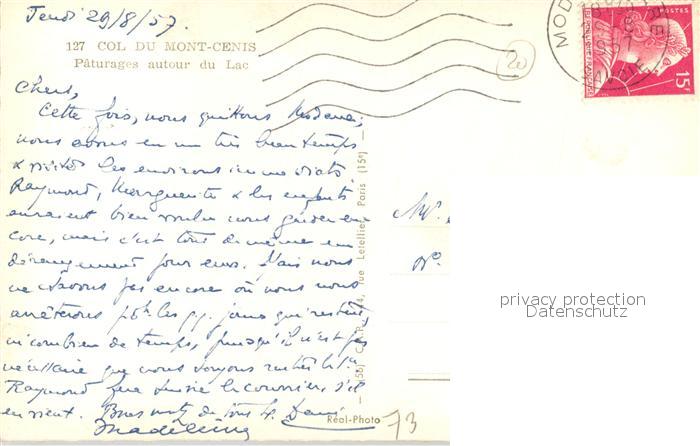 Jeudi 29/8/57.
127 COL DU MONT-CENIS
Pâturages autour du Lac
20
MOD
POSTES
15F
Chers,
Cette fois, nous quittons Modane,
nous avons eu un très beau temps
& visité les environs immédiats
Raymond, Marguerite & les enfants
auraient bien voulu nous garder en
core, mais c'est tout de même un
dérangement pour eux. Mais nous
ne savons pas encore où nous nous
arrêterons les jours qui restent,
ni combien de temps, puisqu'il n'est pas
nécessaire que nous soyons rentrés le 1er
Raymond fera suivre le courrier, s'il
en vient. de tous
Madeleine
rue Letellier, Paris (15e)
Réal-Photo
73
privacy protection
Datenschutz